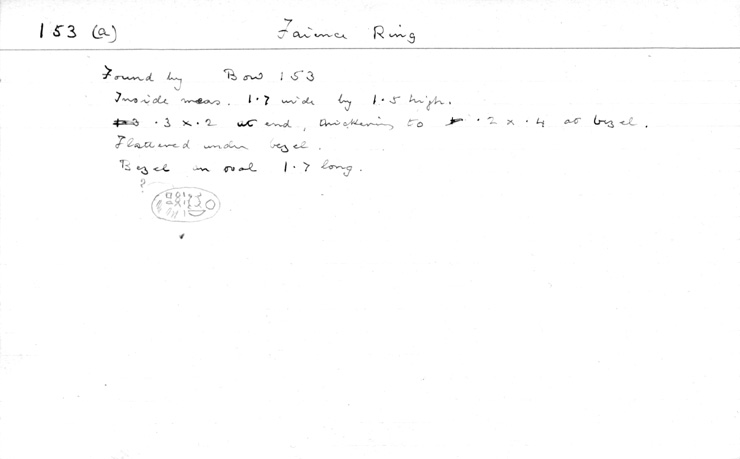 153 (a) Faience Ring
Found by Bow 153
Inside meas. 1.7 wide by 1.5 high.
.3 x .2 at end, thickening to .2 x .4 at bezel.
Flattened under bezel.
Bezel an oval 1.7 long.
?